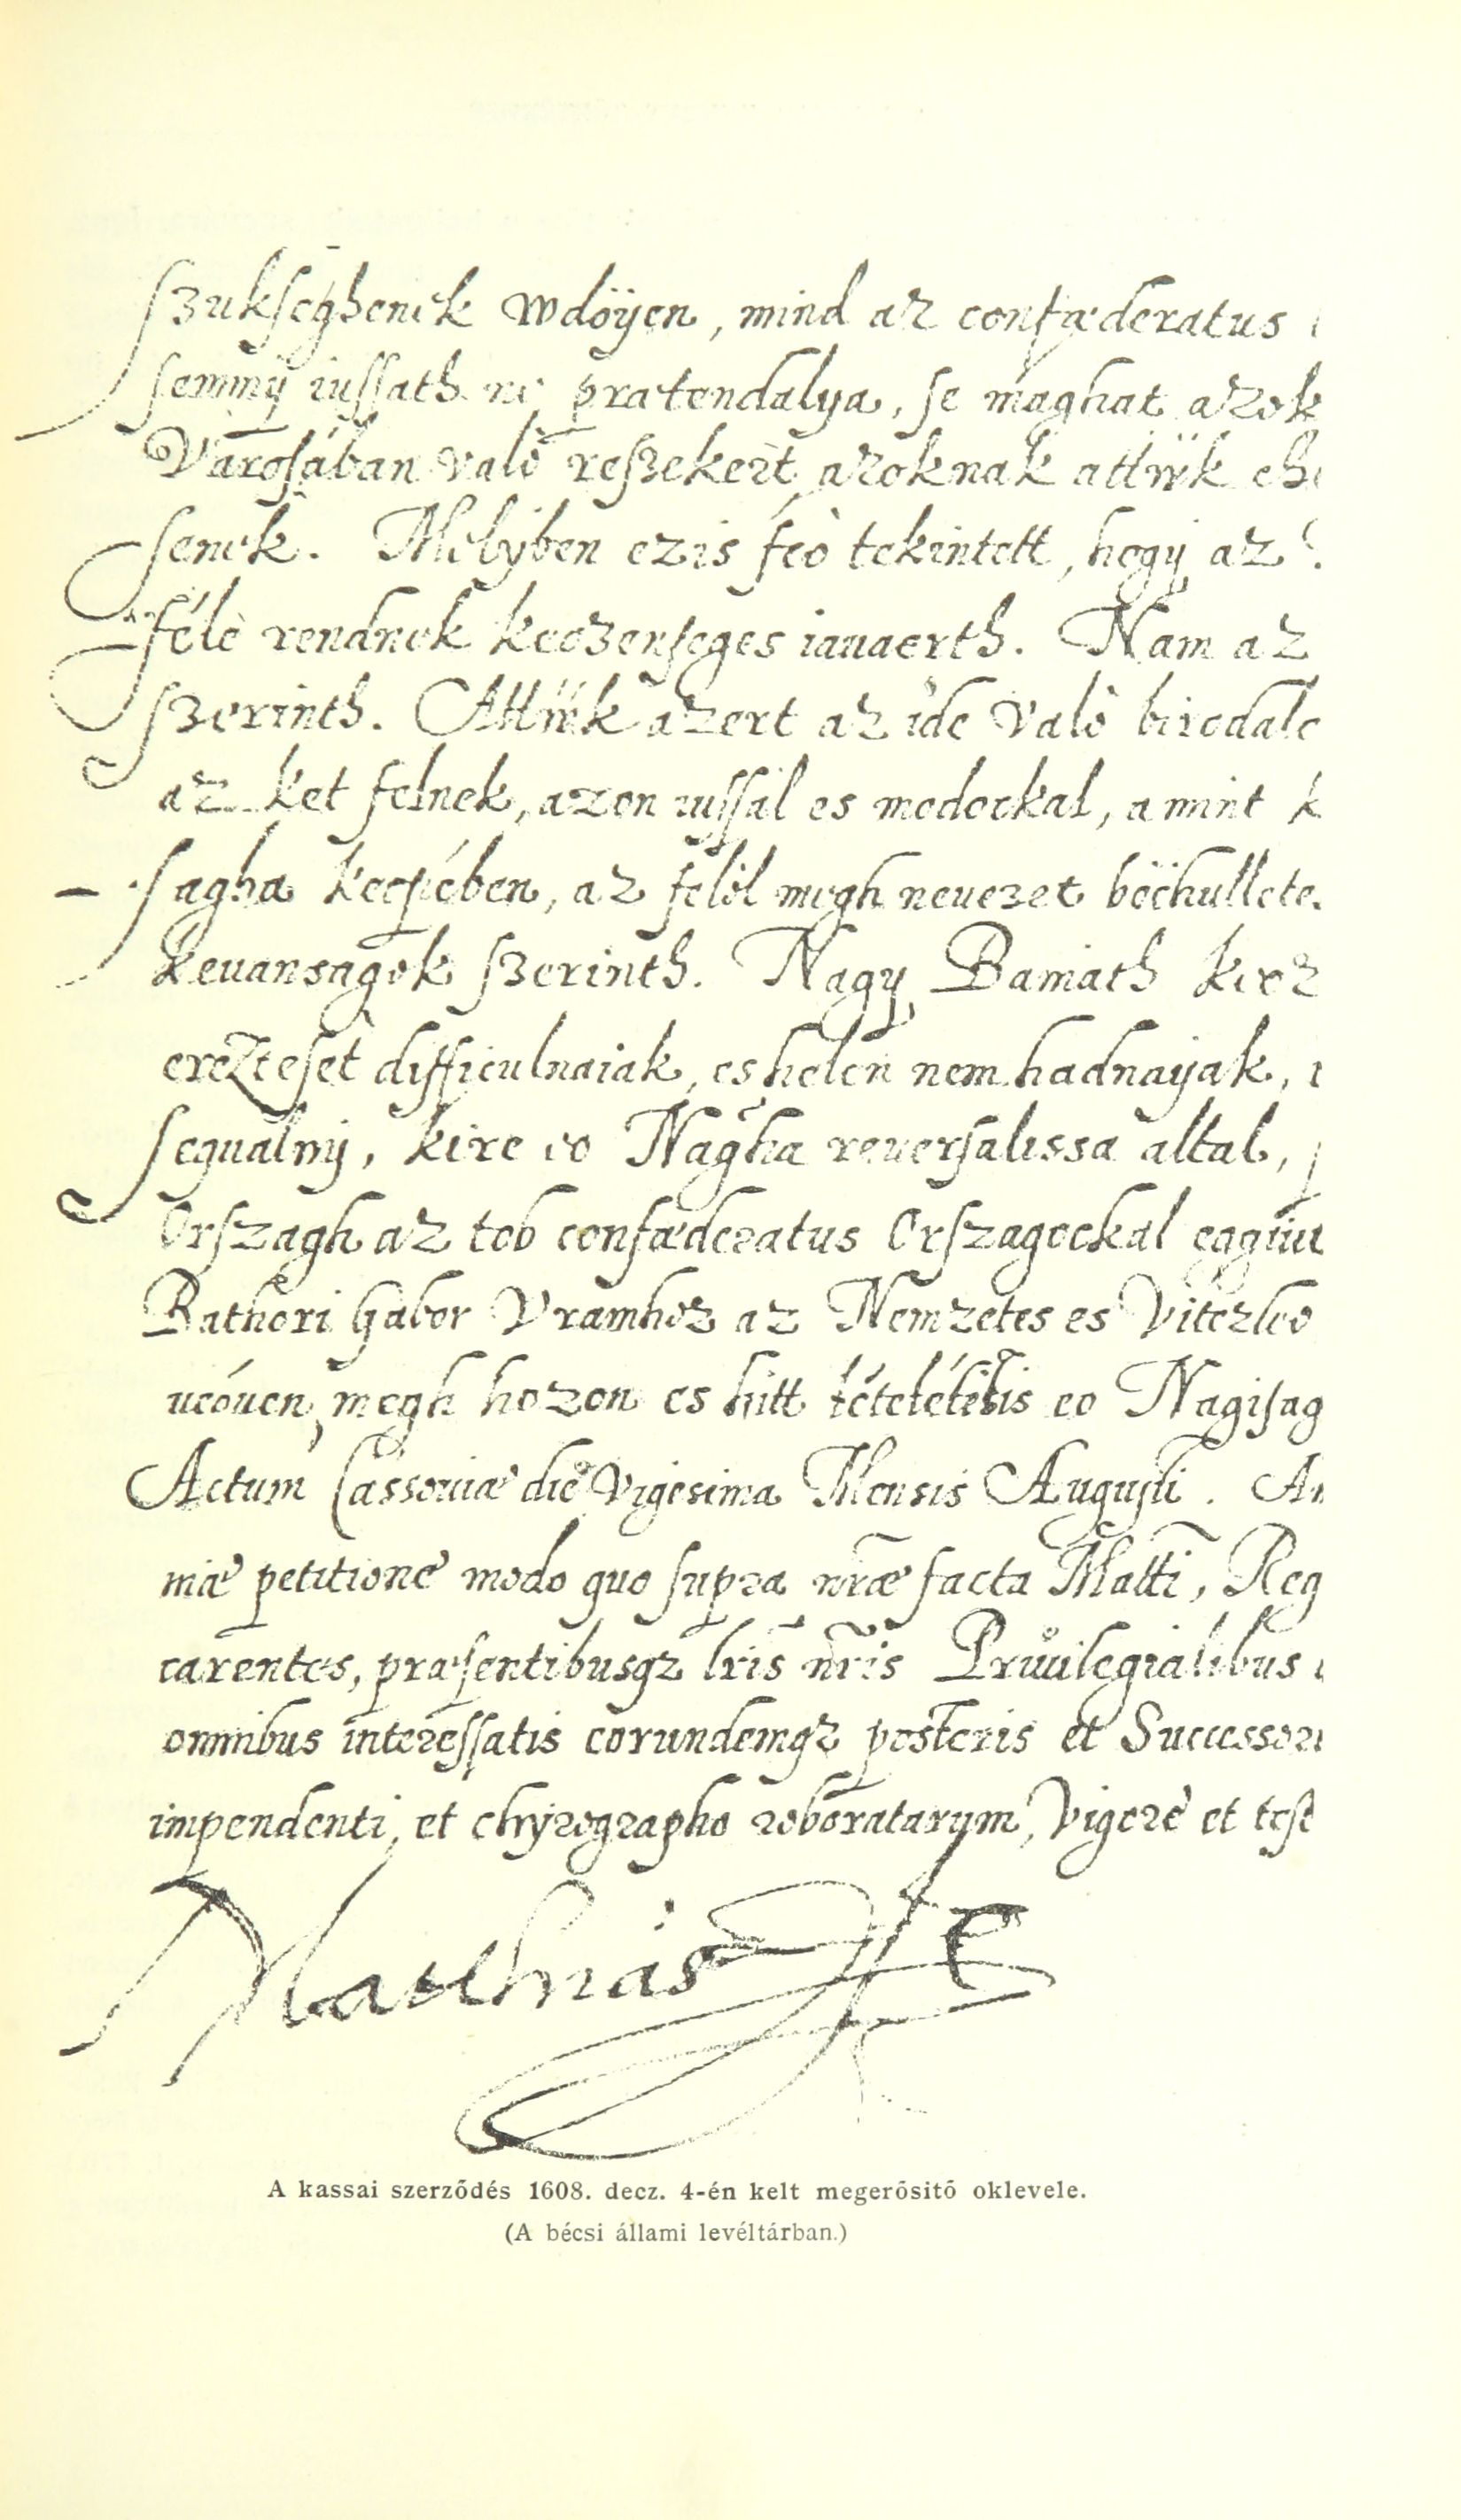 szukseghenek wdöÿen, mind az confæderatus
semmÿ iussath ne prætendalya, se maghat azok
Varosában valò reszekert azoknak attwk
senek. Melÿben ezis feò tekintett, hogÿ az
féle rendnek keozenseges iauaerth. Nam az
szerinth. Attwk azert az ide valò birodal
az ket felnek, azon iussal es modockal, a mint k
sagha keepében, az felöl megh neuezet böchullete
keuansagok szerinth. Nagy Bamath keoz
erezteset difficulnaiak, es helen nem hadnayak,
segualnÿ, kire eo Nagha reuersalissa altal,
Orszagh az tob confæderatus Orszagockal eggiut
Bathori Gabor Vramhoz az Nemzetes es Vitezleo
ueóuen, megh hozon es hitt tételétis eo Nagisag
Actum Cassouiæ die Vigesima Mensis Augusti. An
mæ petitione modo quo supra nræ facta Matti, Reg
carentes, præsentibusqz lris nris Priuilegialibus
omnibus interessatis eorundemqz posteris et Successori
impendenti, et chÿrographo roboratarum, Vigore et test
Matthias
A kassai szerződés 1608. decz. 4-én kelt megerősitő oklevele.
(A bécsi állami levéltárban.)